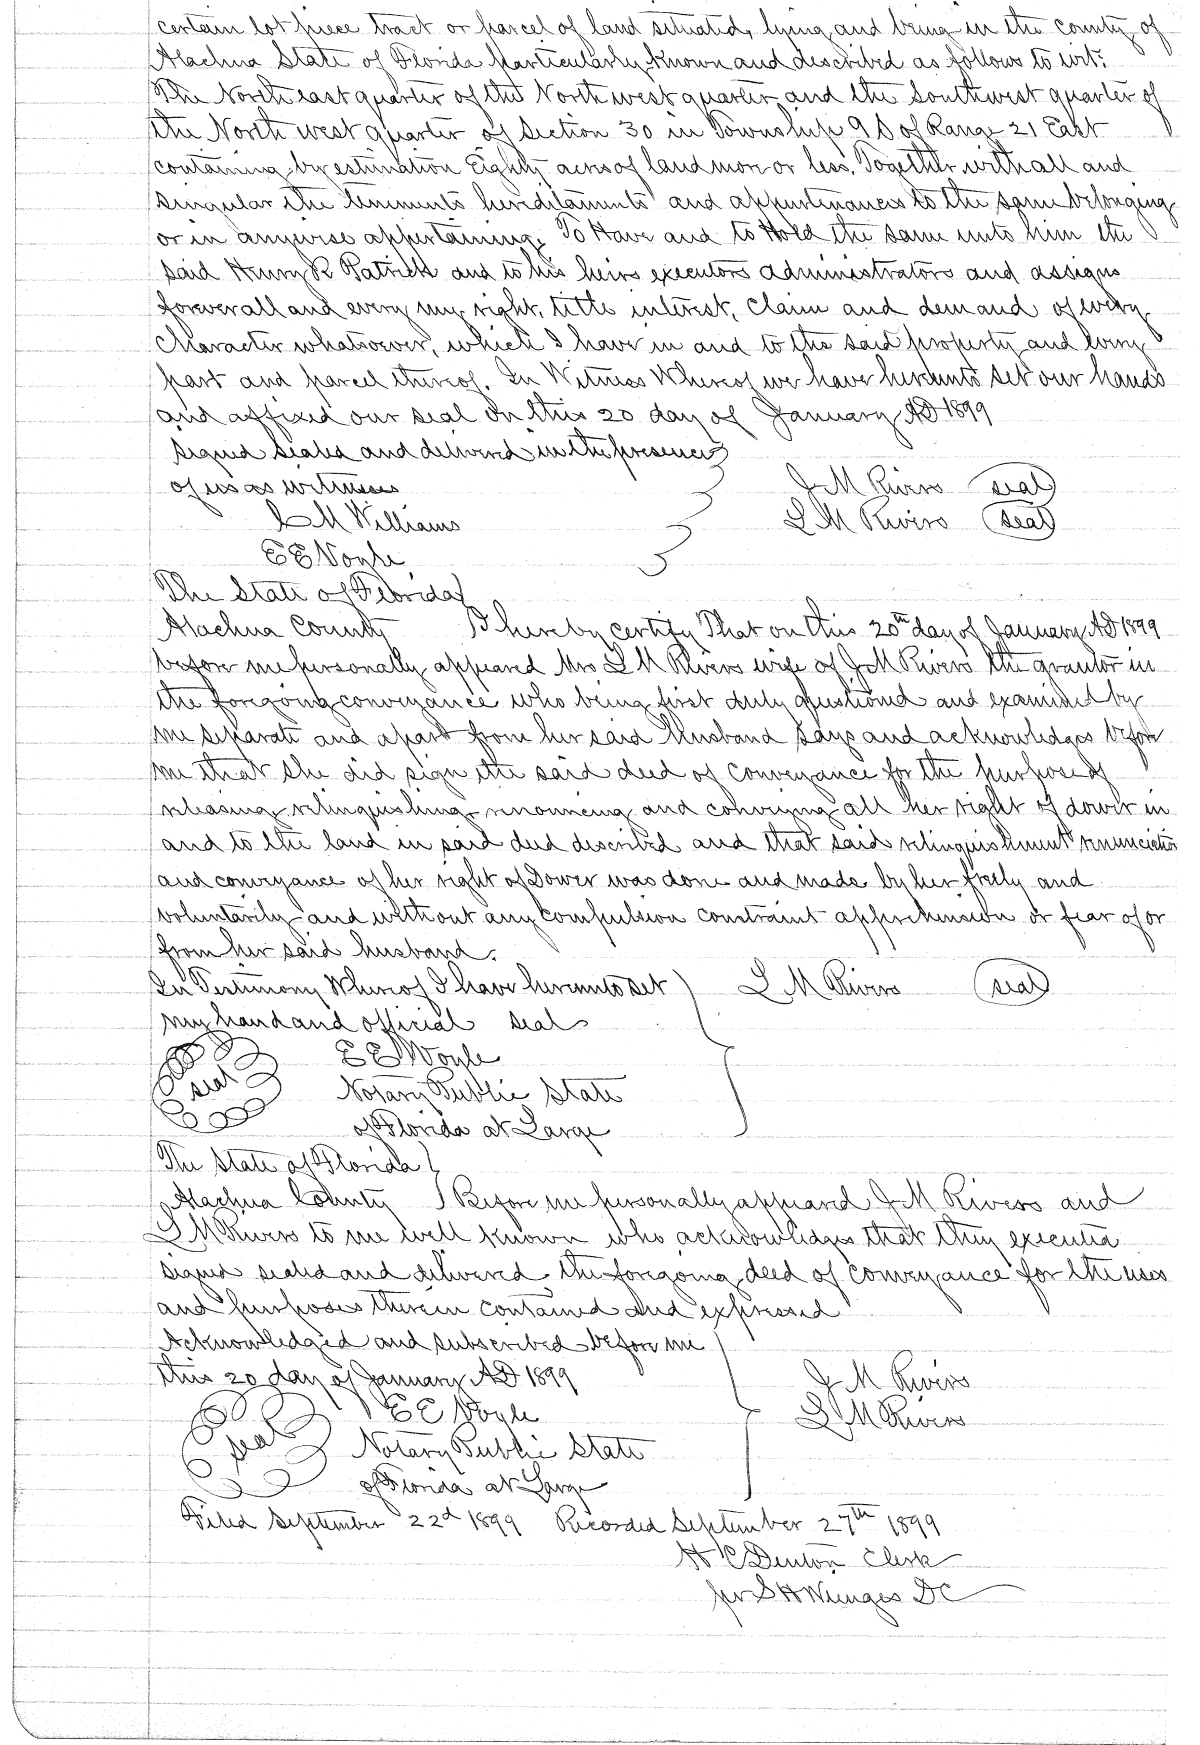 certain lot piece tract or parcel of land situated, lying and being in the county of
Alachua State of Florida particularly known and described as follows to wit:
The North east quarter of the North west quarter and the Southwest quarter of
the North west quarter of Section 30 in Township 9 S of Range 21 East
containing by estimation Eighty acres of land more or less. Together with all and
singular the tenements hereditaments and appurtenances to the same belonging
or in anywise appertaining. To Have and to Hold the same unto him the
said Henry R Patrick and to his heirs executors administrators and assigns
forever all and every my right, title interest, claim and demand of every
Character whatsoever, which I have in and to the said property and every
part and parcel thereof. In Witness Whereof we have hereunto set our hands
and affixed our seal on this 20 day of January AD 1899
Signed sealed and delivered in the presence
of us as witnesses J M Rivers seal
L M Williams L M Rivers seal
E E Voyle
The State of Florida
Alachua County I hereby certify That on this 20th day of January AD 1899
before me personally appeared Mrs L M Rivers wife of J M Rivers the grantor in
the foregoing conveyance who being first duly questioned and examined by
me separate and apart from her said husband says and acknowledges before
me that she did sign the said deed of conveyance for the purpose of
releasing relinquishing renouncing and conveying all her right of dower in
and to the land in said deed described and that said relinquishment renunciation
and conveyance of her right of Dower was done and made by her freely and
voluntarily and without any compulsion constraint apprehension or fear of or
from her said husband.
In Testimony Whereof I have hereunto set L M Rivers seal
my hand and official seal
E E Voyle
seal Notary Public State
of Florida at Large
The State of Florida
Alachua County Before me personally appeared J M Rivers and
L M Rivers to me well known who acknowledges that they executed
signed sealed and delivered the foregoing deed of conveyance for the uses
and purposes therein contained and expressed
Acknowledged and subscribed before me
this 20 day of January AD 1899 J M Rivers
E E Voyle L M Rivers
seal Notary Public State
of Florida at Large
Filed September 22d 1899 Recorded September 27th 1899
H C Denton Clerk
per S H Wienges DC